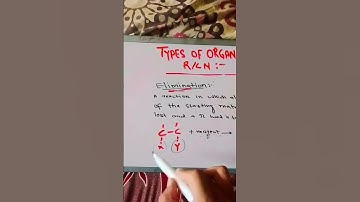 TYPES OF ORGAN
R/C N :-
Elimination:-
A reaction in which
of the starting mat
lost and a π bond is
C - C + reagent →
X Y